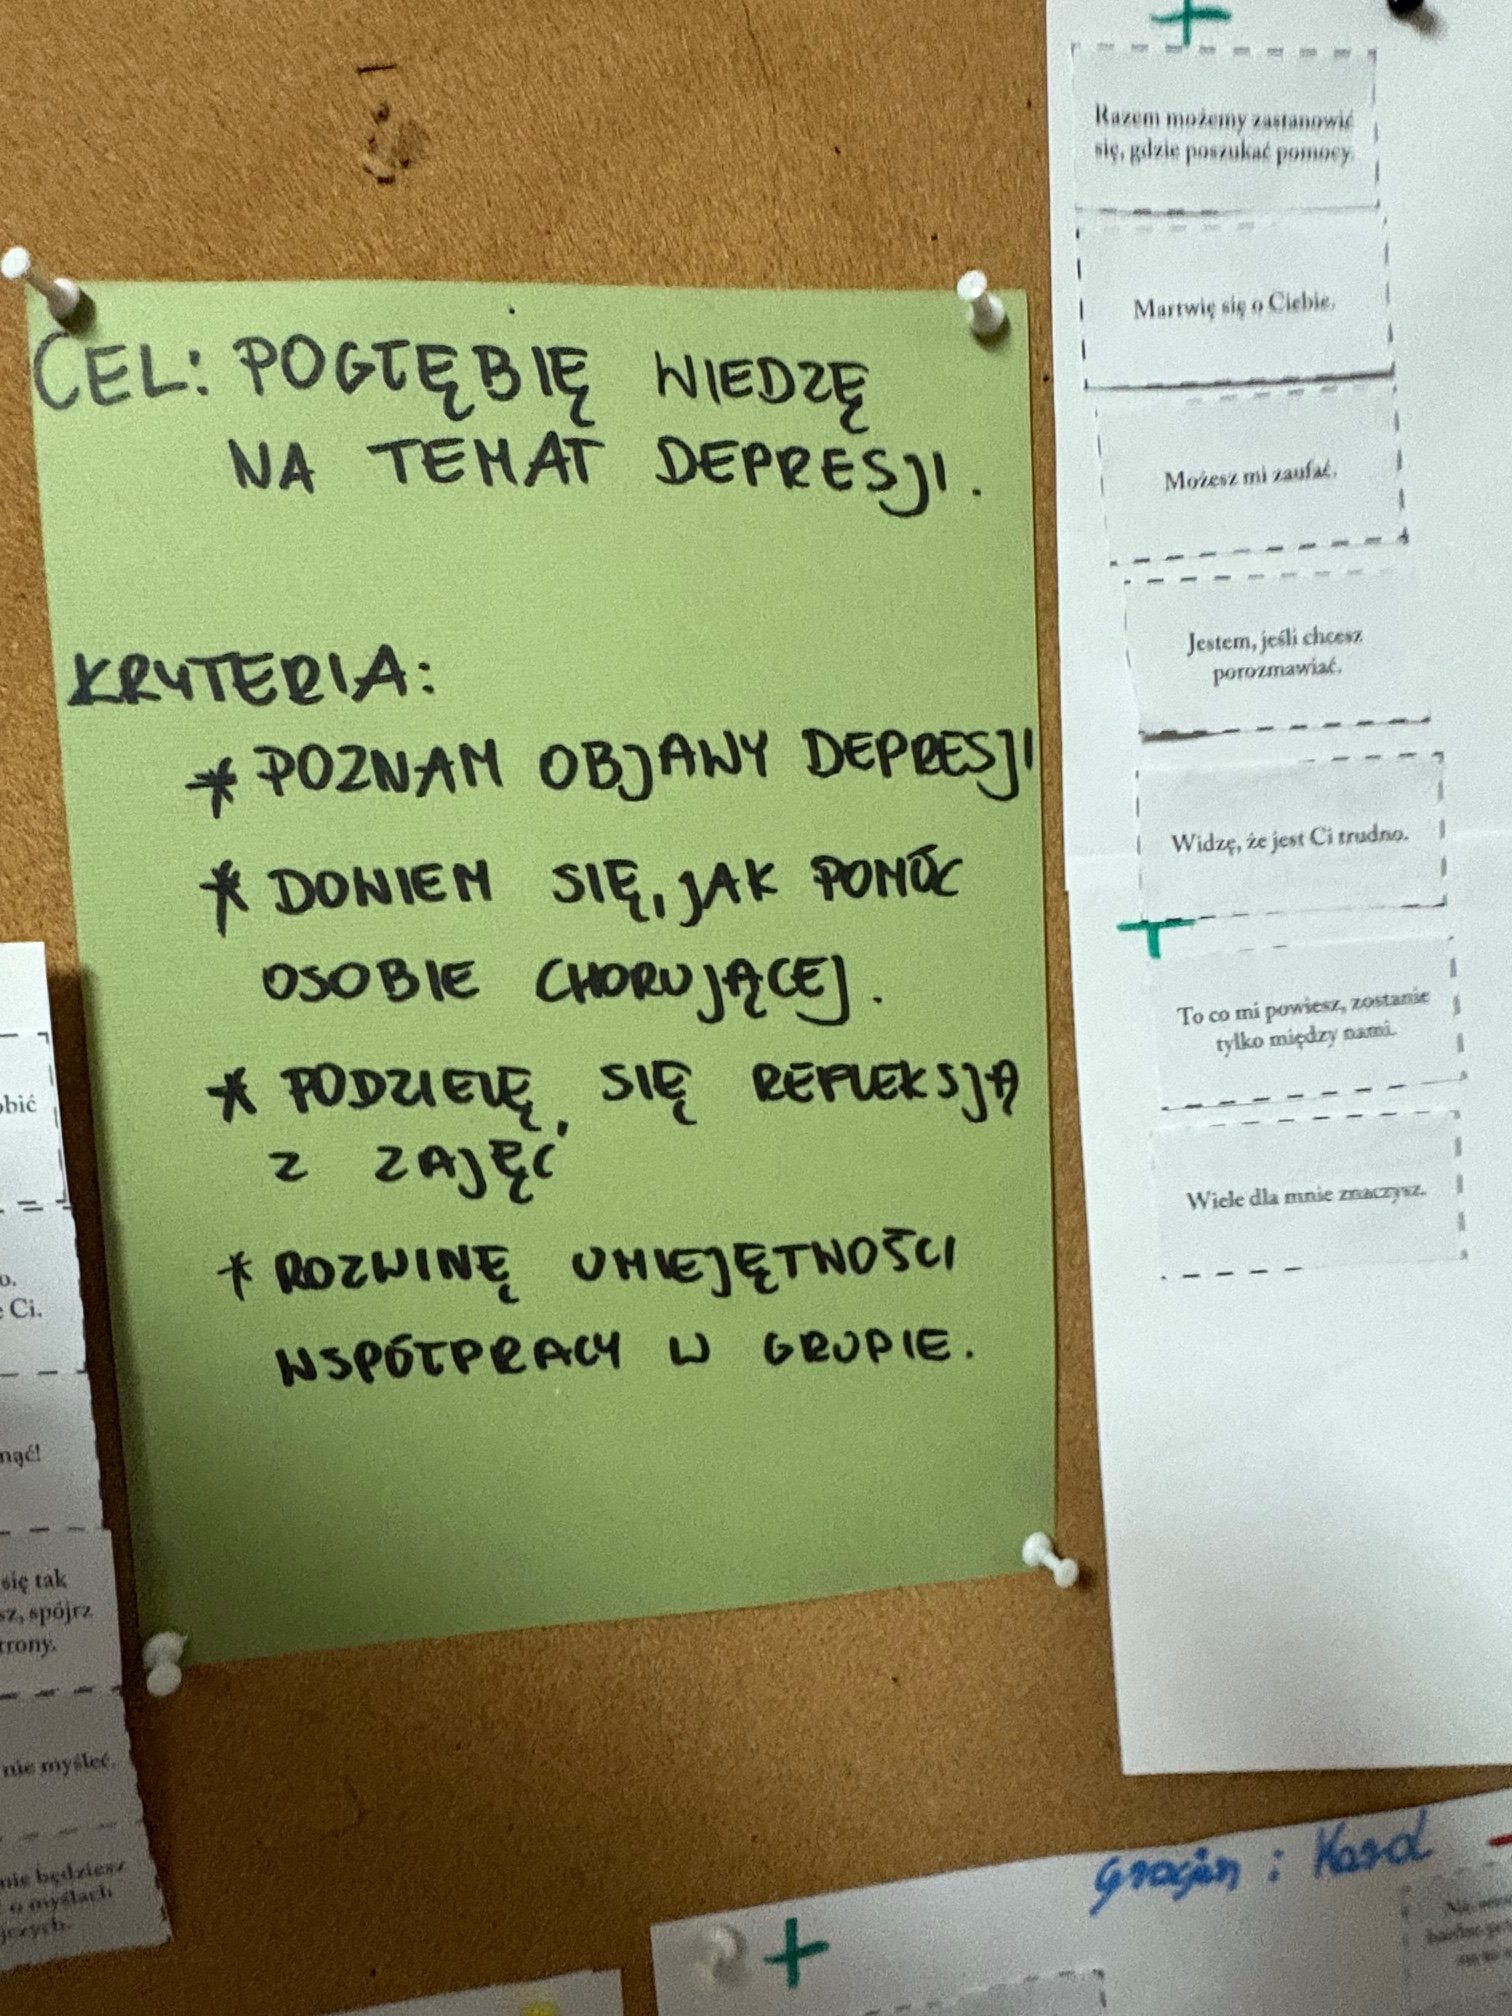 CEL: POGŁĘBIĘ WIEDZĘ
NA TEMAT DEPRESJI.
KRYTERIA:
* POZNAM OBJAWY DEPRESJI
* DOWIEM SIĘ, JAK POMÓC
OSOBIE CHORUJĄCEJ.
* PODZIELĘ SIĘ REFLEKSJĄ
Z ZAJĘĆ
* ROZWINĘ UMIEJĘTNOŚCI
WSPÓŁPRACY W GRUPIE.
+
Razem możemy zastanowić
się, gdzie poszukać pomocy.
Martwię się o Ciebie.
Możesz mi zaufać.
Jestem, jeśli chcesz
porozmawiać.
Widzę, że jest Ci trudno.
To co mi powiesz, zostanie
tylko między nami.
Wiele dla mnie znaczysz.
obić
o.
Ci.
nąć!
się tak
sz, spójrz
trony.
nie myśleć.
nie będziesz
o myślach
jczych.
+